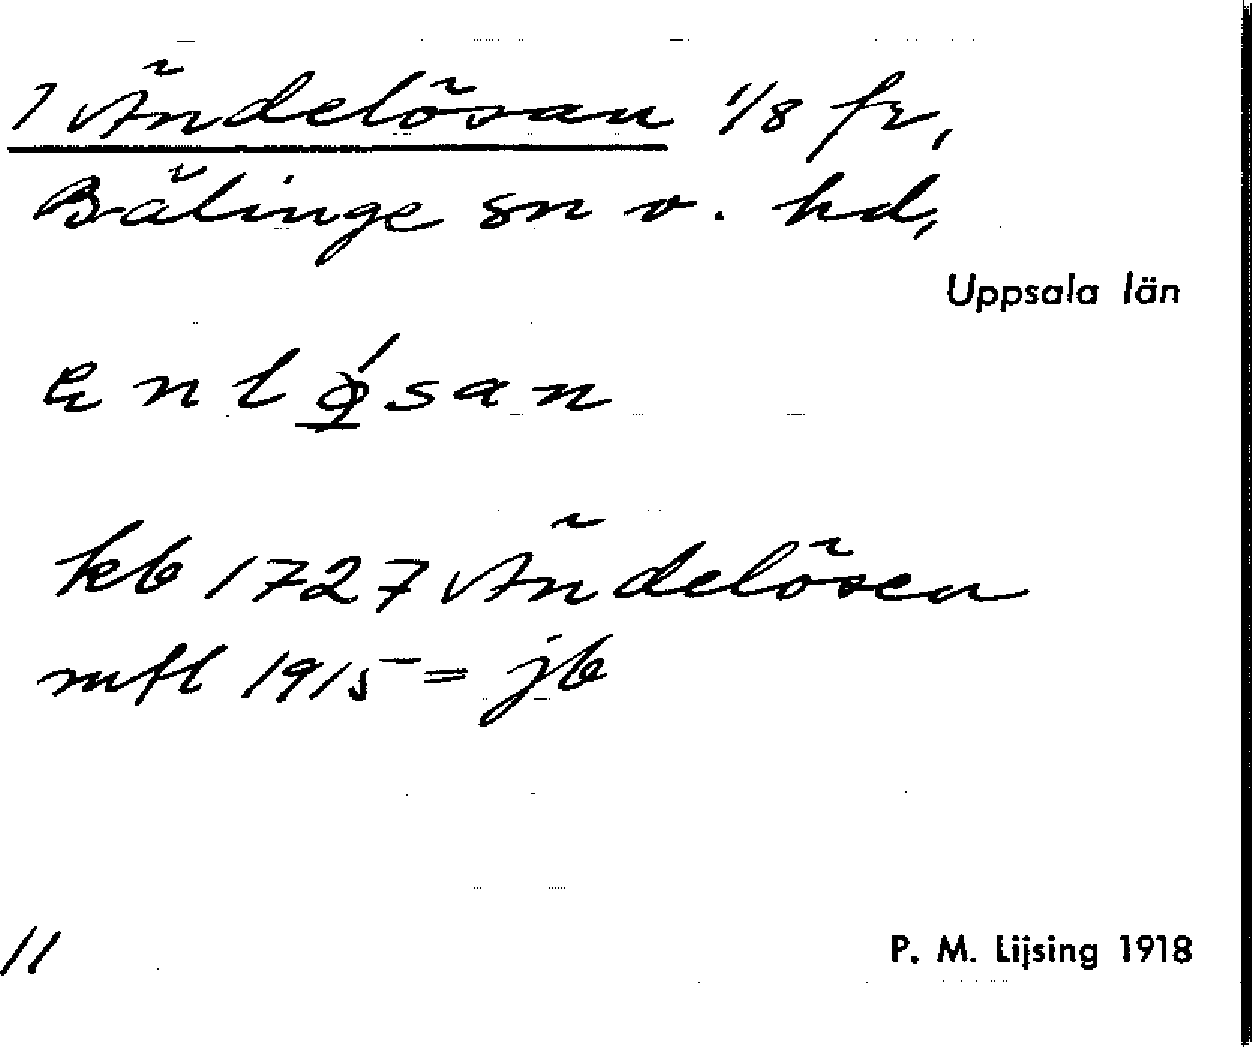 1 Ändelösan 1/8 fr,
Bälinge sn o. hd,
Uppsala län
enlǿsan
kb 1727 Ändelösen
mfl 1915 = jb
11
P. M. Lijsing 1918